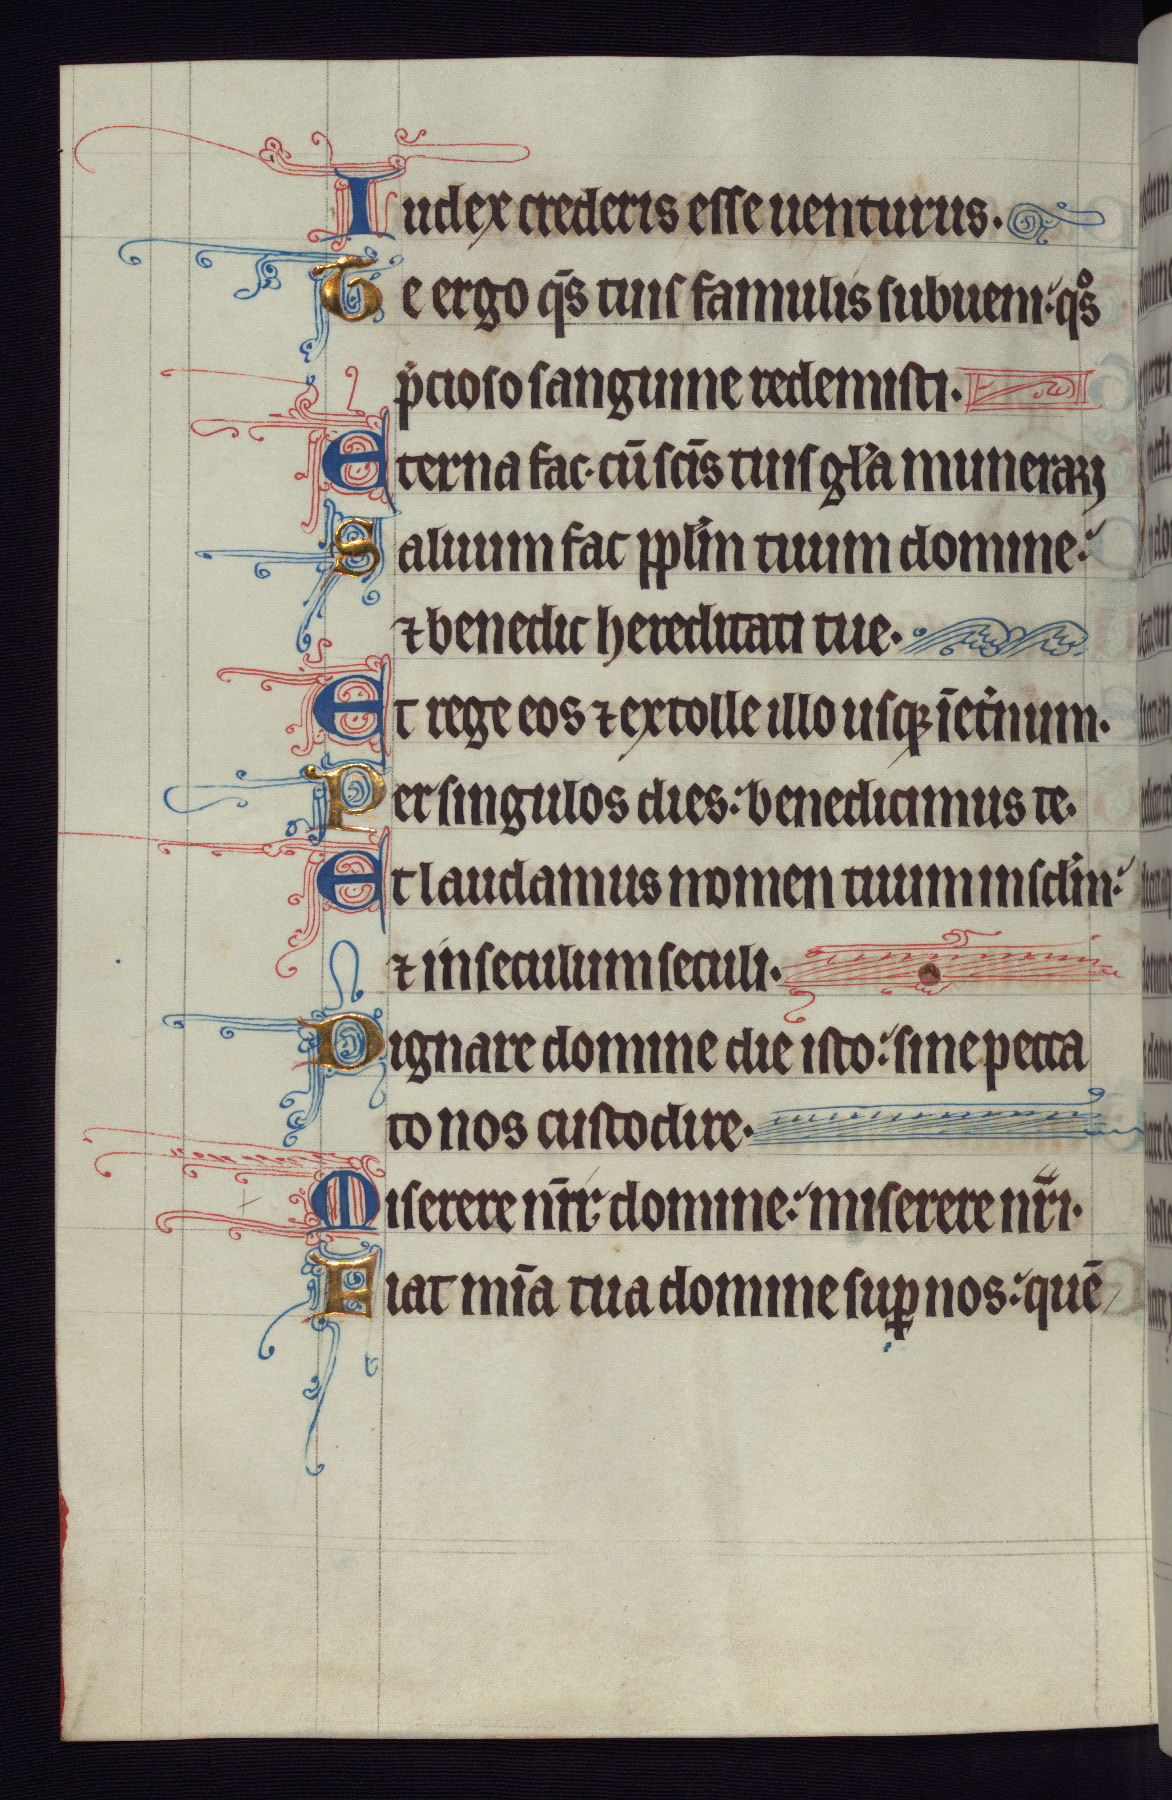 Iudex crederis esse uenturus.
Te ergo q̄s tuis famulis subueni: qᵒs
p̍cioso sanguine redemisti.
Eterna fac. cū sc̄is tuis gl̍a munerarj
Saluum fac ppl̍m tuum domine:
⁊ benedic hereditati tue.
Et rege eos ⁊ extolle illos usqꝫ ī et̍num.
Per singulos dies: benedicimus te.
Et laudamus nomen tuum in sc̍lm:
⁊ in seculum seculi.
Dignare domine die isto: sine pecca
to nos custodire.
Miserere nr̄i domine: miserere nr̄i.
Fiat mīa tua domine suꝑ nos: quē